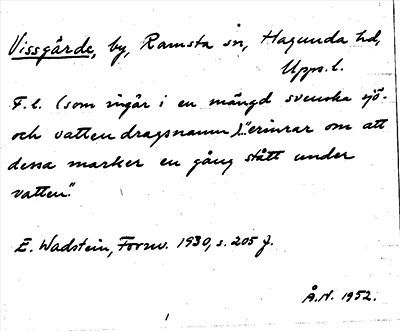 Vissgärde, by, Ramsta sn, Hagunda hd,
Upps. l.
F. l. (som ingår i en mängd svenska sjö-
och vattendragsnamn) "erinrar om att
dessa marker en gång stått under
vatten".
E. Wadstein, Fornv. 1930, s. 205 f.
Å.N. 1952.